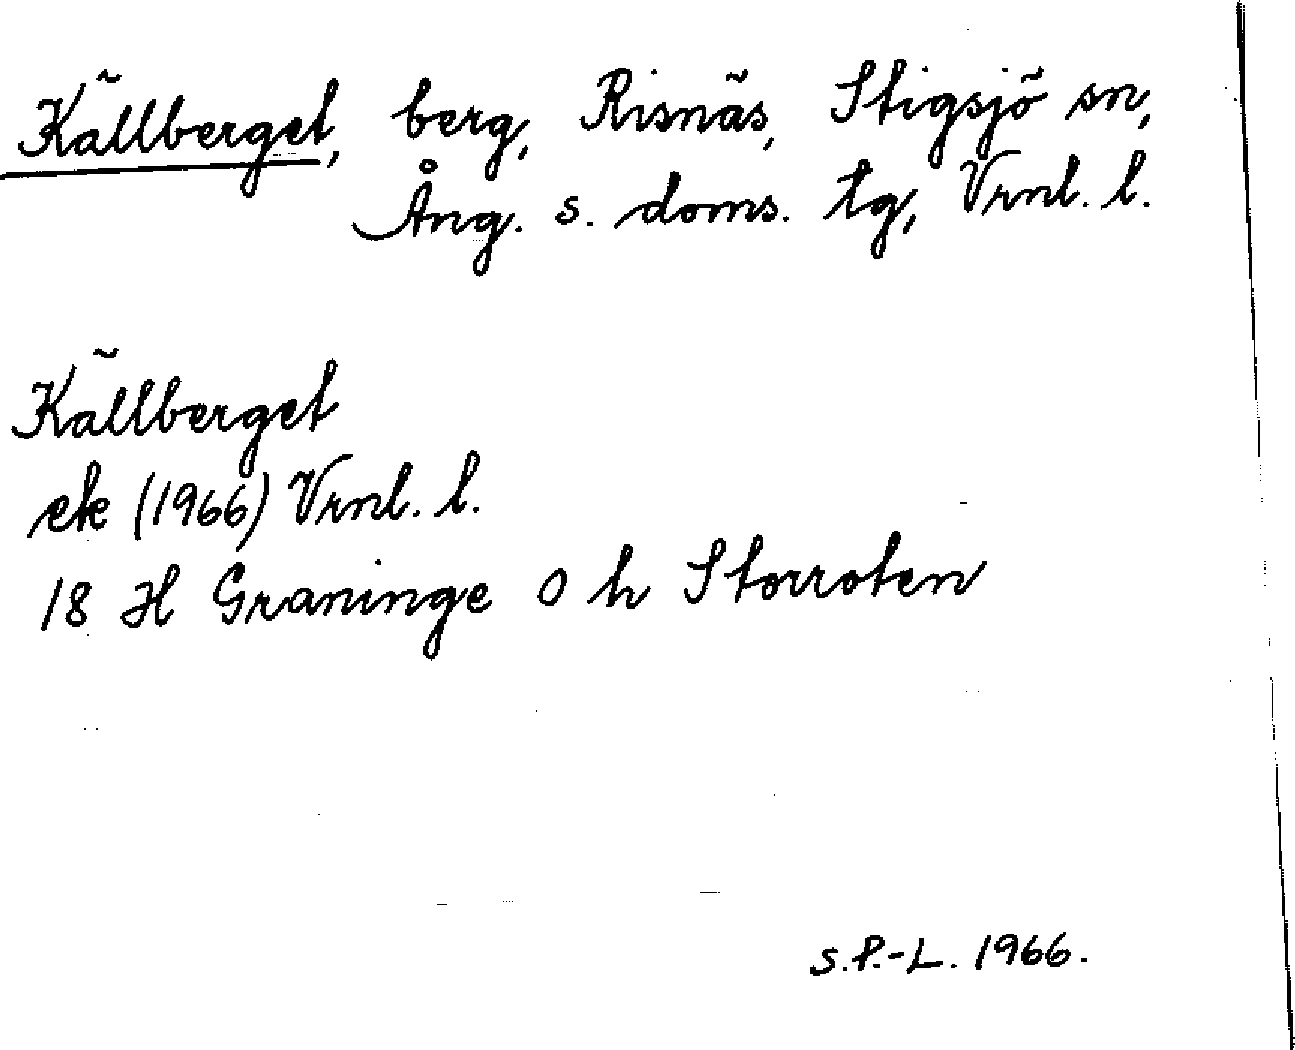 Källberget, berg, Risnäs, Stigsjö sn,
Ång. s. doms. tg, Vrnl. l.
Källberget
ek (1966) Vrnl. l.
18 H Graninge o h Storroten
S.P.-L. 1966.